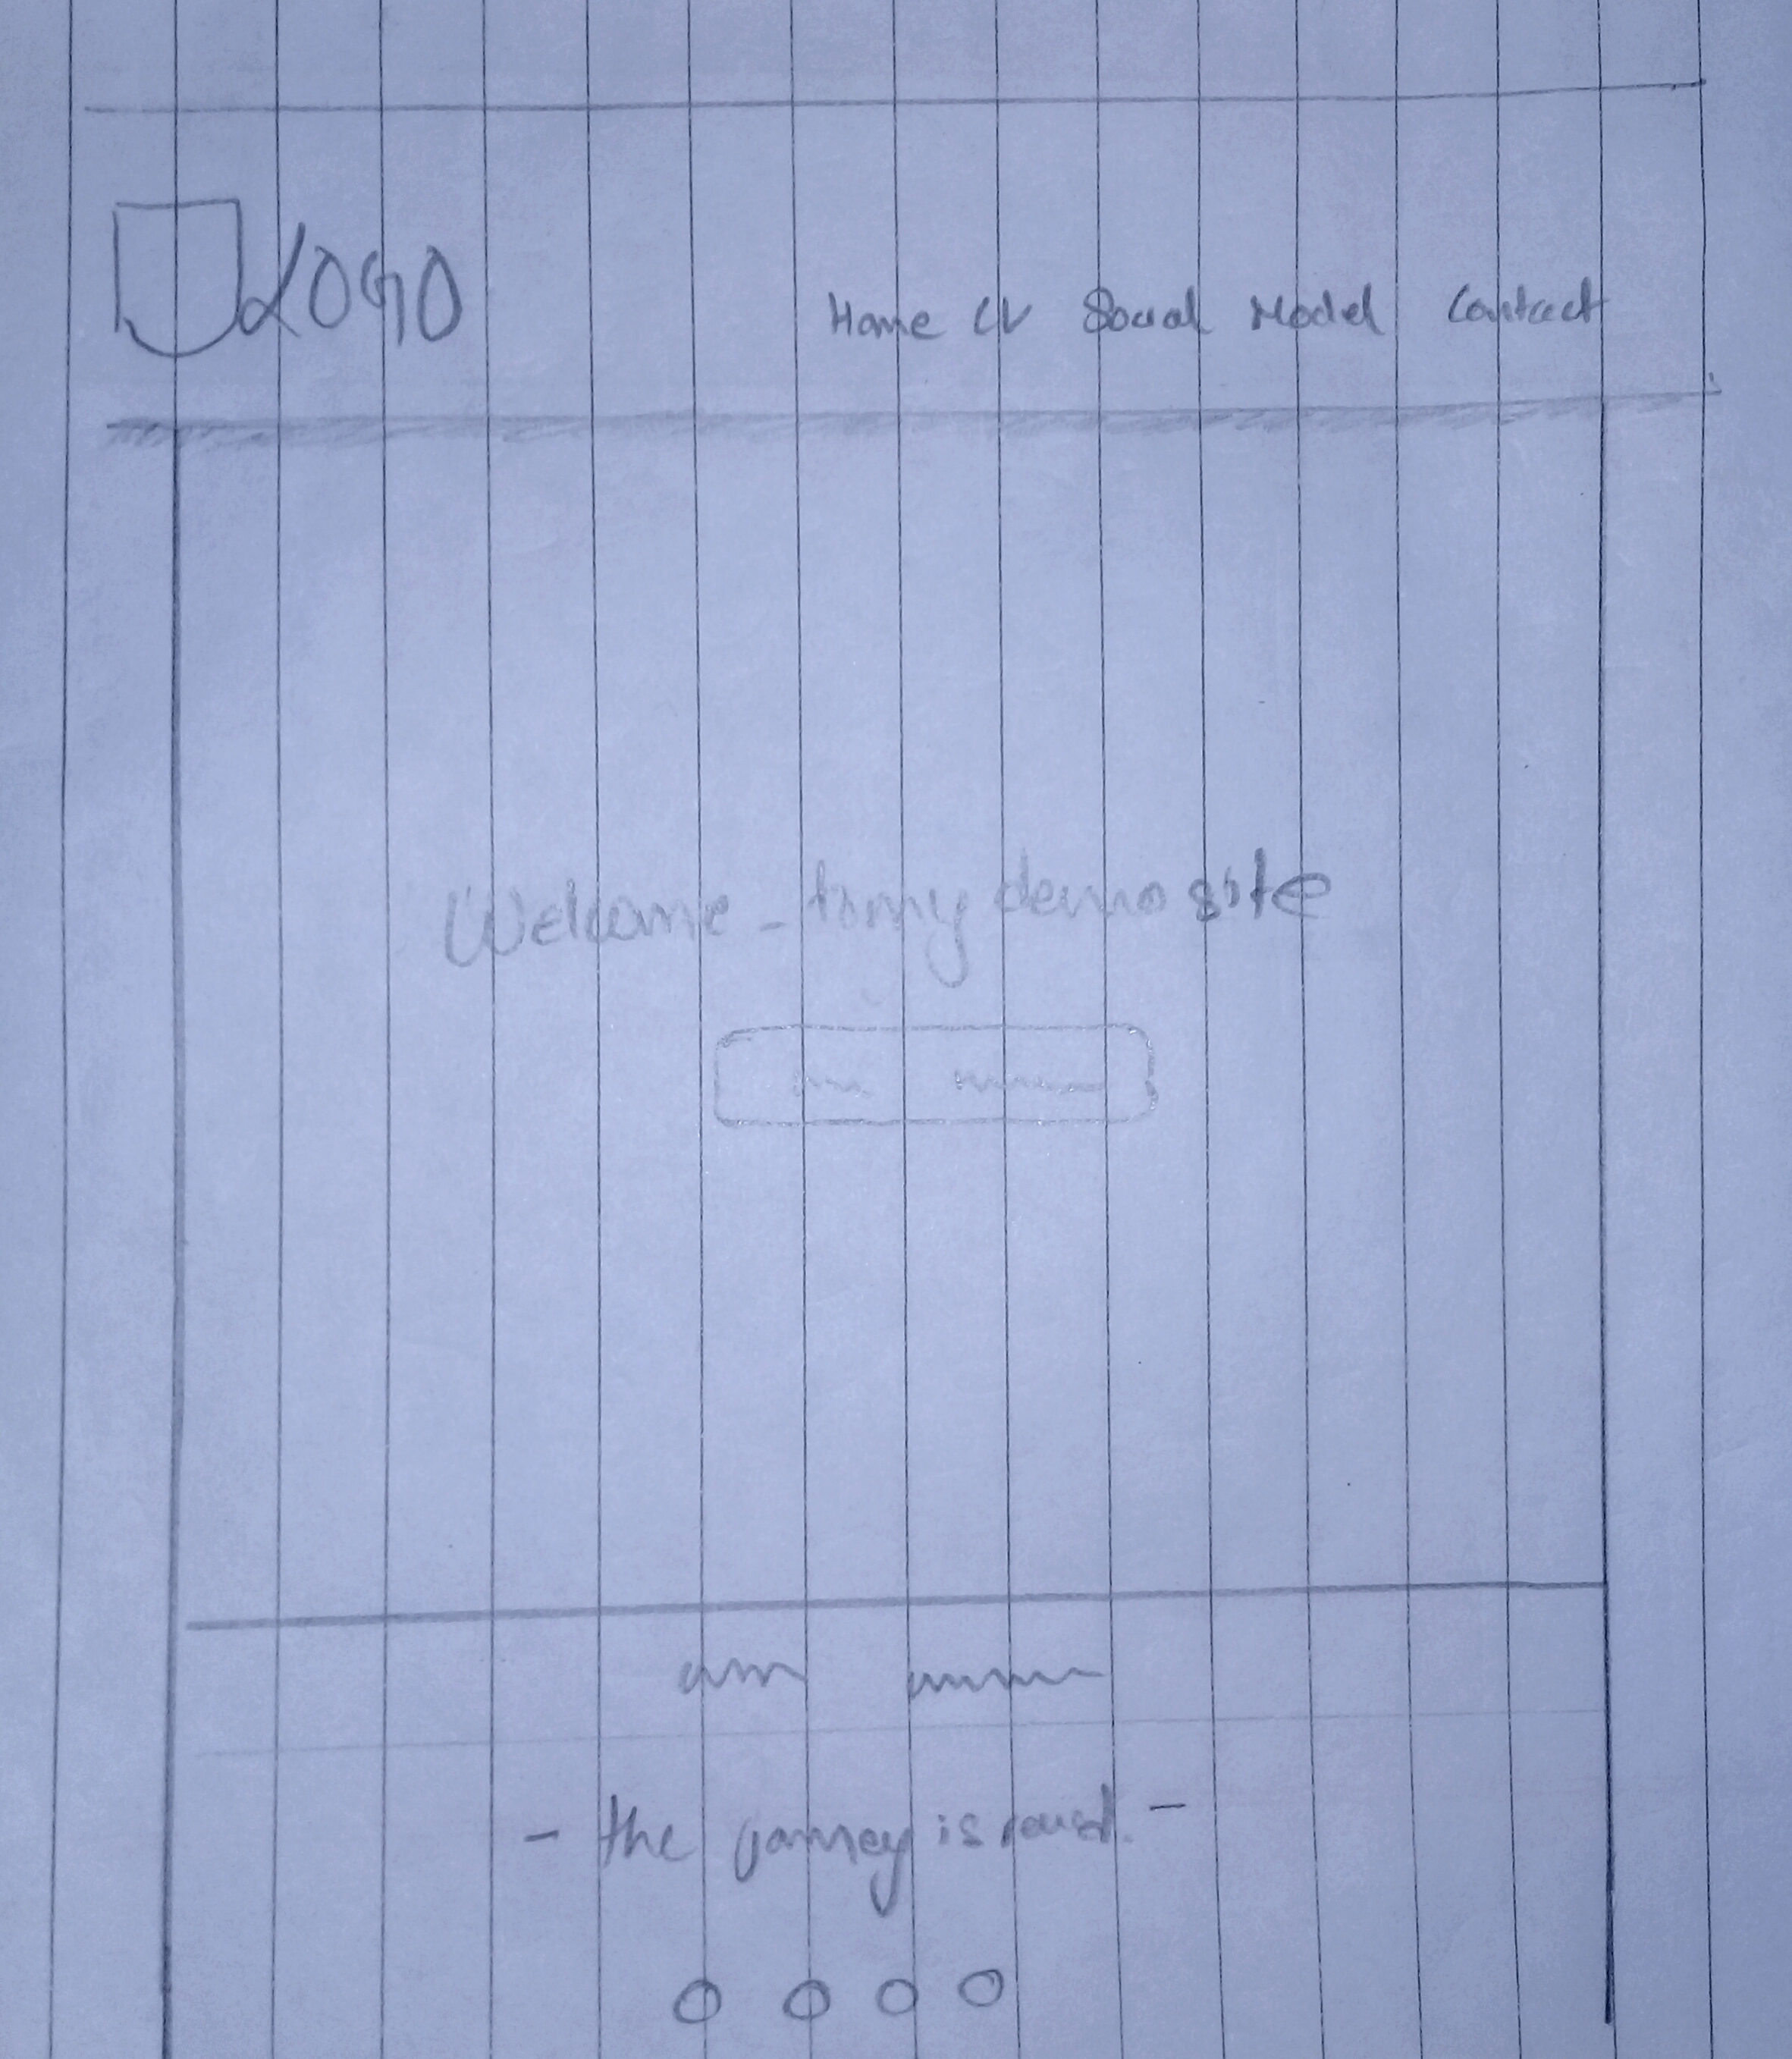 LOGO
Home CV Social Model Contact
Welcome - to my demo site
- the is -